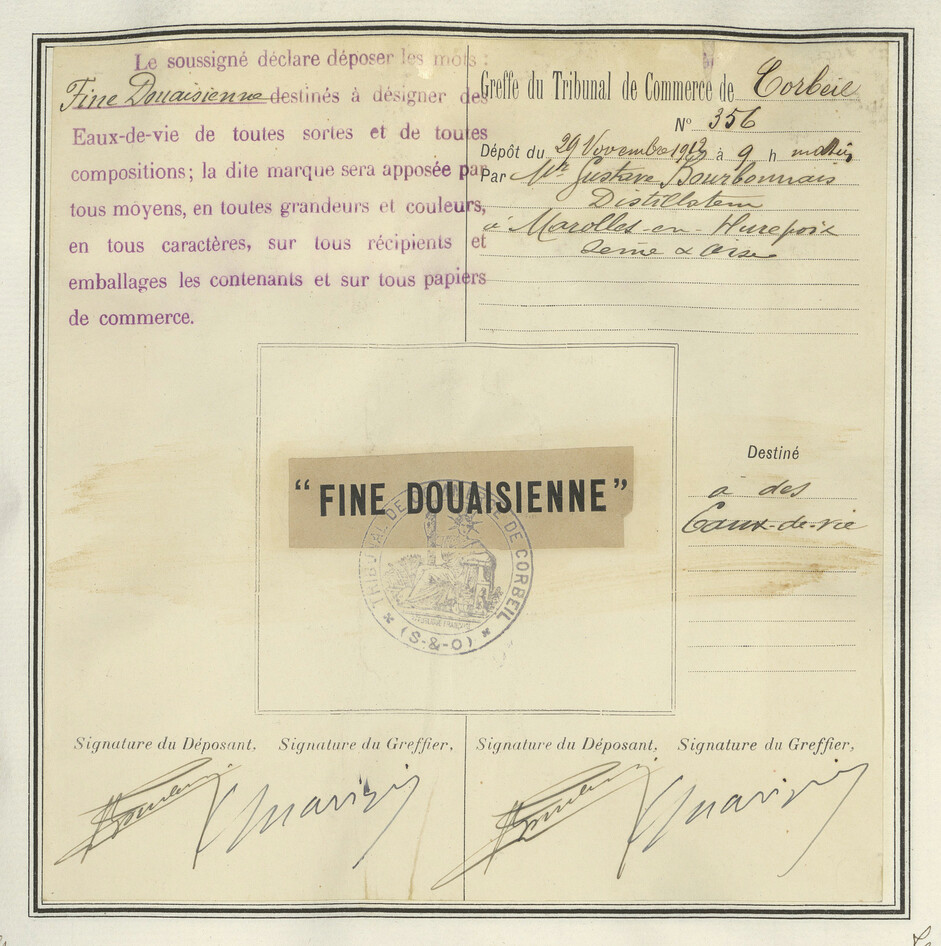 Le soussigné déclare déposer les mots :
Fine Douaisienne destinés à désigner des
Eaux-de-vie de toutes sortes et de toutes
compositions; la dite marque sera apposée par
tous moyens, en toutes grandeurs et couleurs,
en tous caractères, sur tous récipients et
emballages les contenants et sur tous papiers
de commerce.
Greffe du Tribunal de Commerce de Corbeil
N° 356
Dépôt du 29 Novembre 1912 à 9 h matin
Par Mr Gustave Bourbonnais
Distillateur
à Marolles-en-Hurepoix
Seine & Oise
"FINE DOUAISIENNE"
TRIBUNAL DE COMMERCE DE CORBEIL
RÉPUBLIQUE FRANÇAISE
(S-&-O)
Destiné
à des
Eaux-de-vie
Signature du Déposant, Signature du Greffier,
Signature du Déposant, Signature du Greffier,